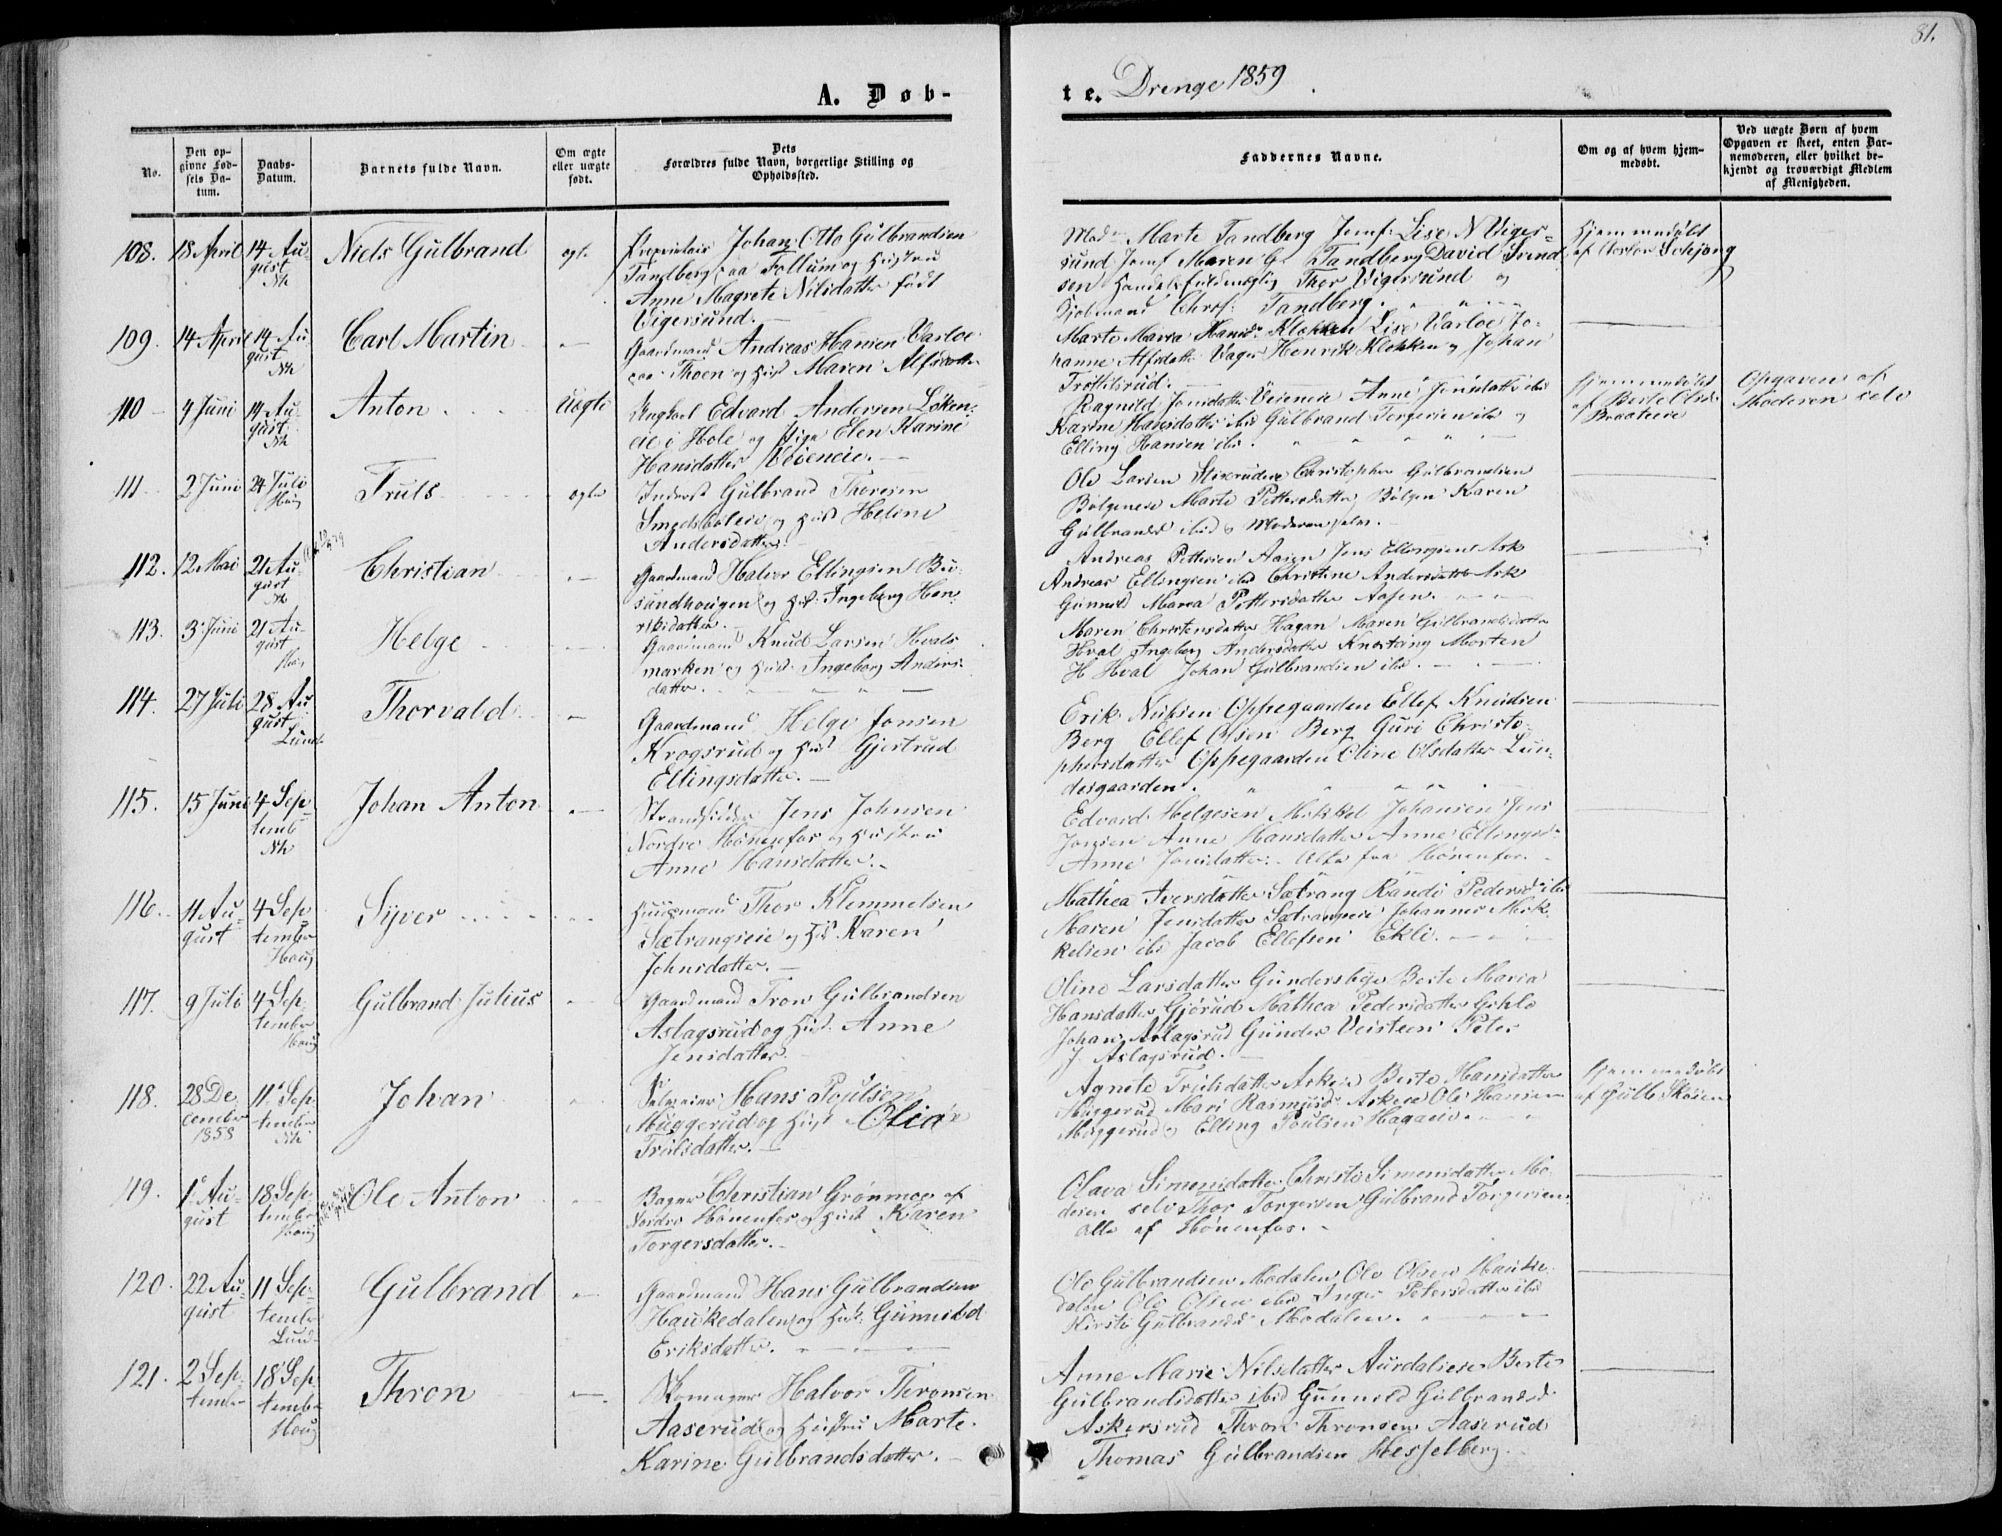 81.
A. Døb-
te. Drenge 1859
No.
Den op-
givne Fød-
sels Da-
tum.
Daabs-
Datum.
Barnets fulde Navn.
Om ægte
eller uægte
født.
Dets
Forældres fulde Navn, borgerlige Stilling og
Opholdssted.
Faddernes Navne.
Om og af hvem hjem-
medøbt.
Ved uægte Børn af hvem
Opgaven er skeet, enten Bar-
nemoderen, eller hvilket be-
kjendt og troværdigt Medlem
af Menigheden.
108. 18 April 14 Au-
gust
Nh
Niels Gulbrand
ægte
Proprietair Johan Otto Gulbrandsen
Tandberg paa Follum og Hustru
Anne Magrete Nilsdatter født
Vigersund.
Mad. Marte Tandberg Jomf: Lise N Viger-
sund Jomf Maren G. Tandberg David Svend
sen Handelsfuldmægtig Thor Vigersund og
Chrs: Tandberg.
Hjemmedøbt
af Schjong
109. 14 April 14 Au-
gust
Nh
Carl Martin
Gaardmand Andreas Hansen Varloe
paa Thoen og Hust Maren Alfsdatter
Marte Maria Hansd. Klækken Lise Varloe Jo-
hanne Alfsdatter Vager Henrik Klekken og Johan
Trøttelsrud.
110 9 Juni 14 Au-
gust
Nh
Anton
Uægte
Ungkarl Edvard Andersen Løken-
eie i Hole og Pige Elen Karine
Hansdatter Veieneie.
Ragnild Jonsdatter Veieneie Anne Jonsdatter ibd
Karine Hansdatter ibd Gulbrand Torgersen ibd og
Elling Hansen ibd.
Hjemmedøbt
af Berte Olsd.
Braateeie
Opgaven af
Moderen selv
111 2 Juni 24 Juli
Haug
Truls
ægte
Inderst Gulbrand Thoresen
Smedsbøleie og Hust Heline
Andersdatter.
Ole Larsen Christopher Gulbrandsen
Bølgeneie Marte Pettersdatter Bølgen Karen
Gulbrandsd ibid & Moderen selv.
112. 12 Mai 21 Au-
gust
Nh
Christian
Gaardmand Halvor Ellingsen Bu-
sundhougen og Hust: Ingeborg Hen-
riksdatter.
Andreas Pettersen Aasen Jens Ellingsen Ask
Andreas Ellingsen ibd Christine Andersdatter Ask
Gunnild Maria Pettersdatter Aasen.
113. 3 Juni 21 Au-
gust
Haug
Helge
Gaardmand Knud Larsen Hvals
marken og Hust: Ingeborg Anders-
datter.
Maren Christensdatter Hagan Maren Gulbrandsdatter
Hval Ingeborg Andersdatter Knestang Morten
H Hval Johan Gulbrandsen ibd.
114. 27 Juli 28 Au-
gust
Lund
Thorvald
Gaardmand Helge Jonsen
Krogsrud og Hust Gjertrud
Ellingsdatter.
Erik Nielsen Oppegaarden Ellef Knudsen
Berg Ellef Olsen Berg Guri Christo-
phersdatter Oppegaarden Oline Olsdatter Lun-
desgaarden.
115. 15 Juni 4 Sep-
temb
Nh
Johan Anton
Strandsidder Jens Johnsen
Nordre Hønenfos og Hustru
Anne Hansdatter.
Edvard Helgesen Mikkel Johansen Jens
Jonsen Anne Hansdatter Anne Ellingsd.
Anne Jonsdatter. Alle fra Hønenfos.
116. 11 Au-
gust 4 Sep
tember
Haug
Syver
Huusmand Thor Klemmetsen
Sætrangseie og Hust Karen
Johnsdatter.
Mathea Iversdatter Sætrang Randi Pedersd ibd
Maren Jensdatter Sætrangeie Johannes Mik-
kelsen ibd Jacob Ellefsen Ekli.
117. 9 Juli 4 Sep-
tember
Haug
Gulbrand Julius
Gaardmand Tron Gulbrandsen
Aslagsrud og Hust: Anne
Jensdatter.
Oline Larsdatter Gundersbye Berte Maria
Hansdatter Gjørud Mathea Pedersdatter
Johan Aslagsrud Gunder Veisteen Peter
J. Aslagsrud.
118. 28 De-
cember
1858 11 Sep-
tember
Nh
Johan
Selveier Hans Poulsen
Muggerud og Hust Olia
Trulsdatter.
Agnete Trulsdatter Askeie Berte Hansdatter
Muggerud Mari Rasmusd. Askeie Ole Hansen
Muggerud & Elling Poulsen Hagaeie.
Hjemmedøbt
af Gulb Skøien
119. 1 Au-
gust 18 Sep-
tember
Haug
Ole Anton
Bager Christian Grønmoe af
Nordre Hønenfos og Hust Karen
Torgersdatter.
Olava Simensdatter Christi Simensdatter Mo-
deren selv Thor Torgersen Gulbrand Torgersen
alle af Hønenfos.
120. 22 Au-
gust 11 Sep-
tember
Lund
Gulbrand
Gaardmand Hans Gulbrandsen
Haukedalen og Hust: Gunnild
Eriksdatter.
Ole Gulbrandsen Modalen Ole Olsen Hauke-
dalen Ole Olsen ibd Inger Petersdatter ibd
Kirsti Gulbrandsd Modalen.
121. 2 Sep-
tember 18 Sep-
tember
Haug
Thron
Komager Halvor Thronsen
Aaserud og Hustru Marte
Karine Gulbrandsdatter.
Anne Marie Nilsdatter Aurdalseie Berte
Gulbrandsdatter ibid Gunnild Gulbrandsd
Askersrud Thron Thronsen Aaserud
Thomas Gulbrandsen Hesselberg.